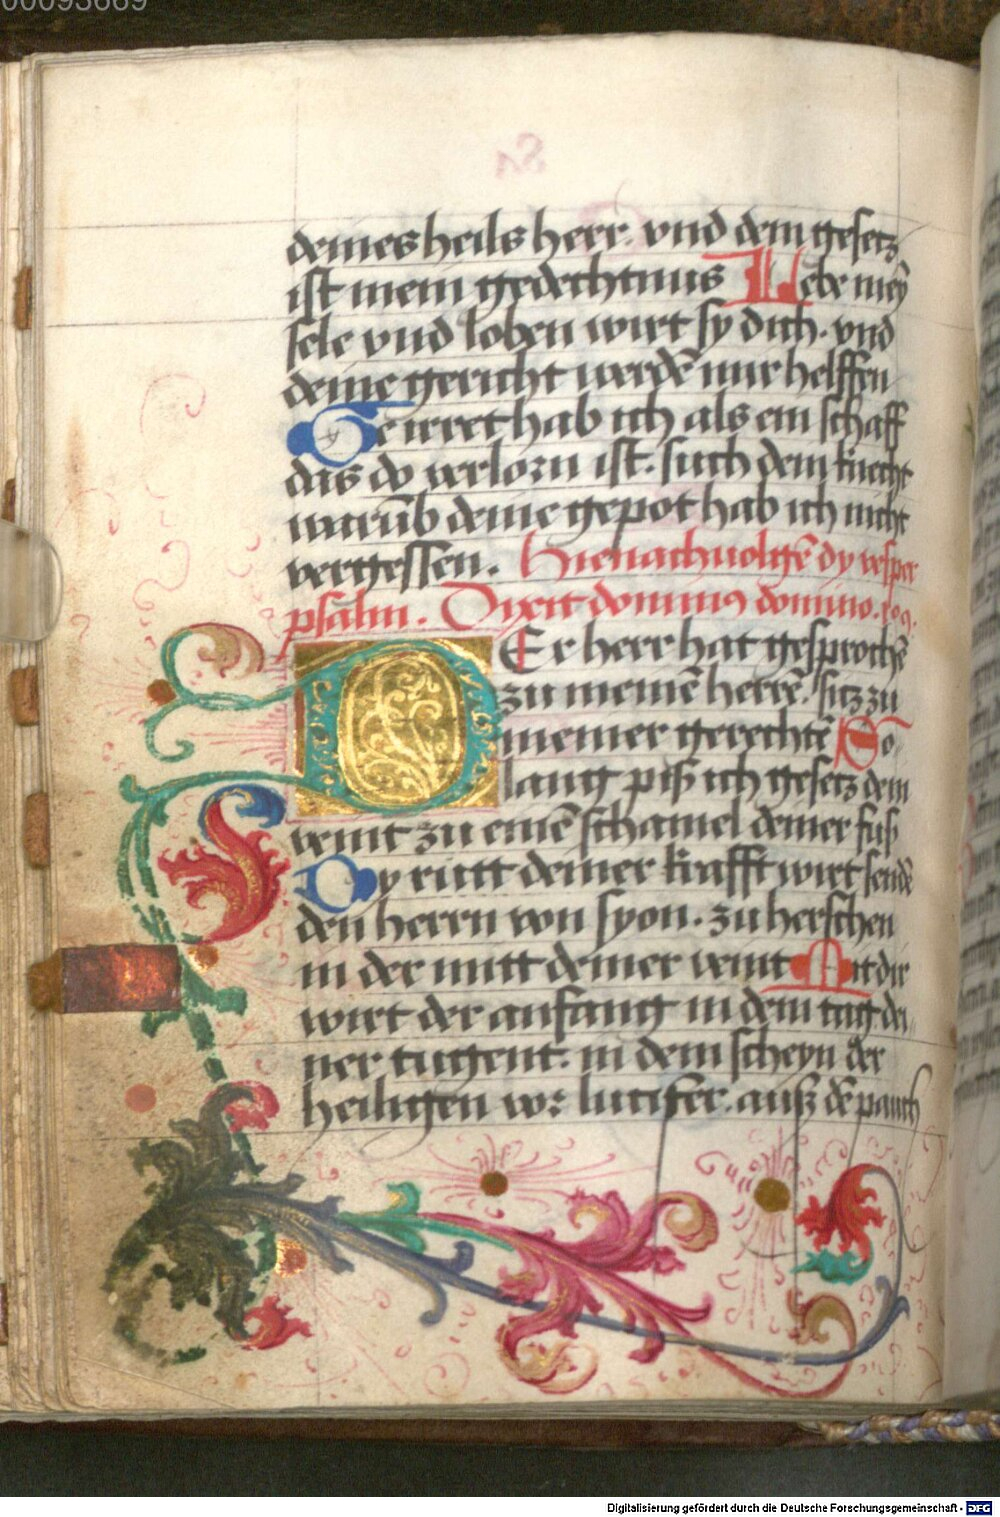 00093669
deines heils herr. vnd dein gesetz
ist mein gedechtnus Lebe mey̅
sele vnd loben wirt sy dich. vnd
deine gericht werde̅ mir helffen
Geirret hab ich als ein schaff
das do verlorn ist. such dein knecht
waru̅b deine gepot hab ich nicht
vergessen. Hienach uolge̅ dy vesper
psalm. Dixit dominus domino. 109.
DEr herr hat gesproche̅
zu meine̅ herre̅. sitz zu
meiner gerechte̅ So
lang piß ich gesetz dein
veint zu eine̅ schamel deiner fuß
Dy rutt deiner krafft wirt sende̅
den herrn von syon. zu herschen
in der mitt deiner veint Mit dir
wirt der anfang in dem tag dei
ner tugent. in dem scheyn der
heiligen vor lucifer. auß de̅ pauch
Digitalisierung gefördert durch die Deutsche Forschungsgemeinschaft - DFG